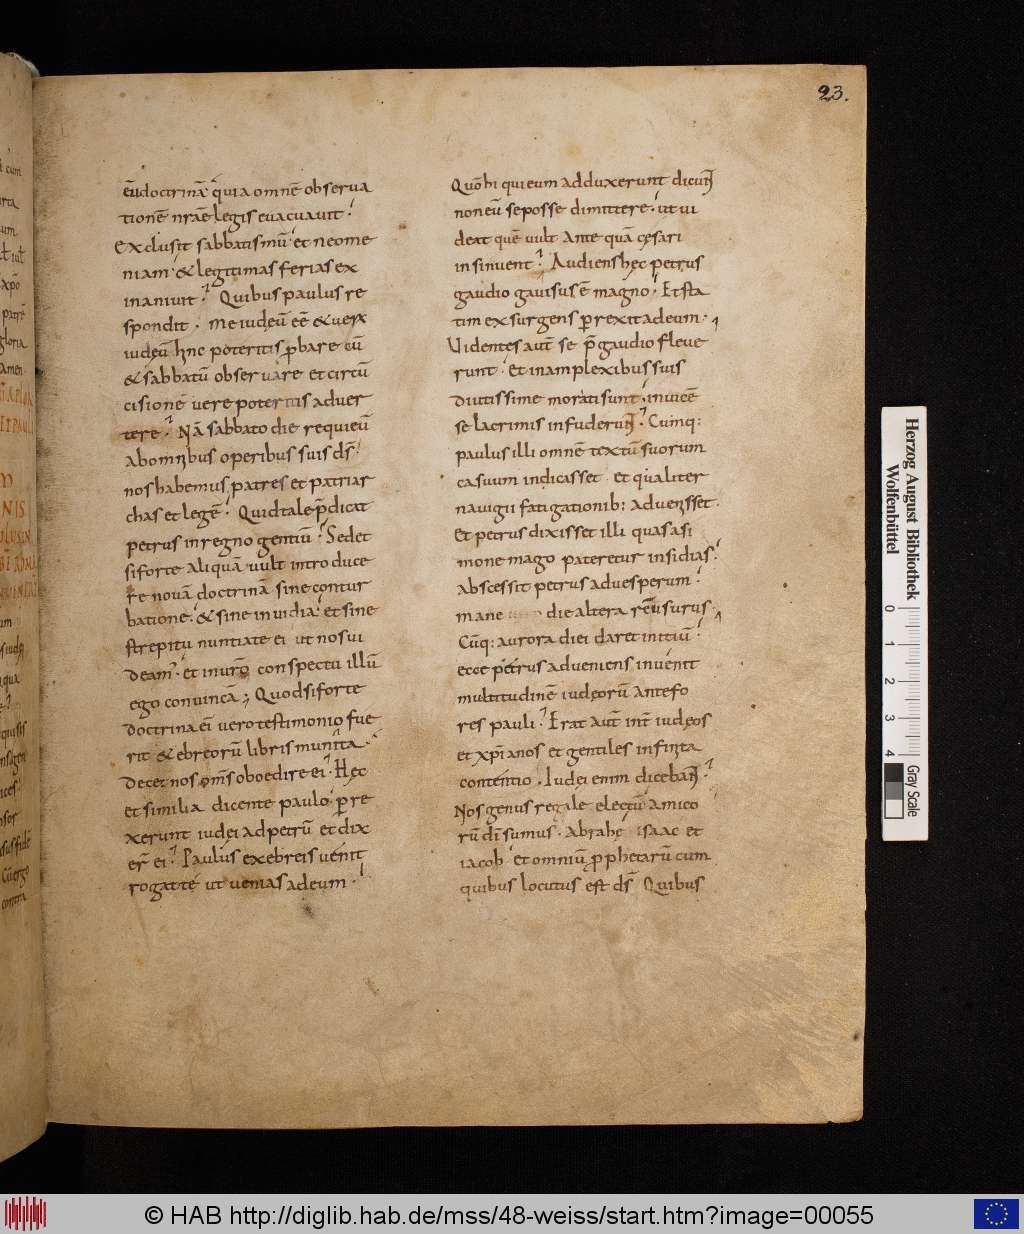 23.
eū doctrinā quia omnē observa
tionē nr̄ae legis evacuavit.
Exclusit sabbatismū et neome
niam & legitimas ferias ex
inanivit. Quibus paulus re
spondit. Me iudeū eē & verū
iudeū hinc poteritis p̄bare cū
& sabbatū observare et circū
cisionē vere poteritis adver
tere. Nā sabbato die requievū
ab omnibus operibus suis ds̄.
nos habemus patres et patriar
chas et legē. Quid tale p̄dicat
petrus in regno gentiū. Sed et
si forte aliquā vult introduce
re novā doctrinā sine contur
batione. & sine invidia. et sine
strepitu nuntiate ei ut nos vi
deam̄. et in vr̄o conspectu illū
ego convincā; Quod si forte
doctrina eī vero testimonio fue
rit & ebreorū libris munita.
Decet nos om̄s oboedire ei. Hęc
et similia dicente paulo. p̄re
xerunt iudei ad petrū et dix
er̄ ei. Paulus ex ebreis venit
rogat te ut venias ad eum.
Quō hi qui eum adduxerunt dicunt
non eū se posse dimittere. ut vi
deat quē vult ante quā cęsari
insinuent. Audiens hęc petrus
gaudio gavisus ē magno. Et sta
tim exsurgens p̄rexit ad eum.
Videntes aut̄ se p̄ gaudio fleve
runt. Et in amplexibus suis
diutissime morati sunt. invicē
se lacrimis infuderunt. Cumq:
paulus illi omnē textū suorum
casuum indicasset. et qualiter
navigii fatigationib: advenisset.
Et petrus dixisset illi quas a si
mone mago pateretur insidias.
abscessit petrus ad vesperum.
mane die altera reversurus.
Cūq: aurora diei daret initiū.
ecce petrus adveniens invenit
multitudinē iudęorū ante fo
res pauli. Erat aut̄ int̄ iudęos
et xp̄ianos et gentiles infinita
contentio. Iudei enim dicebant.
Nos genus regale electū amico
rū dī sumus. Abrahę isaac et
iacob et omniū p̄phetarū cum
quibus locutus est ds̄ Quibus
Herzog August Bibliothek
Wolfenbüttel
0
1
2
3
4
Gray Scale
© HAB http://diglib.hab.de/mss/48-weiss/start.htm?image=00055